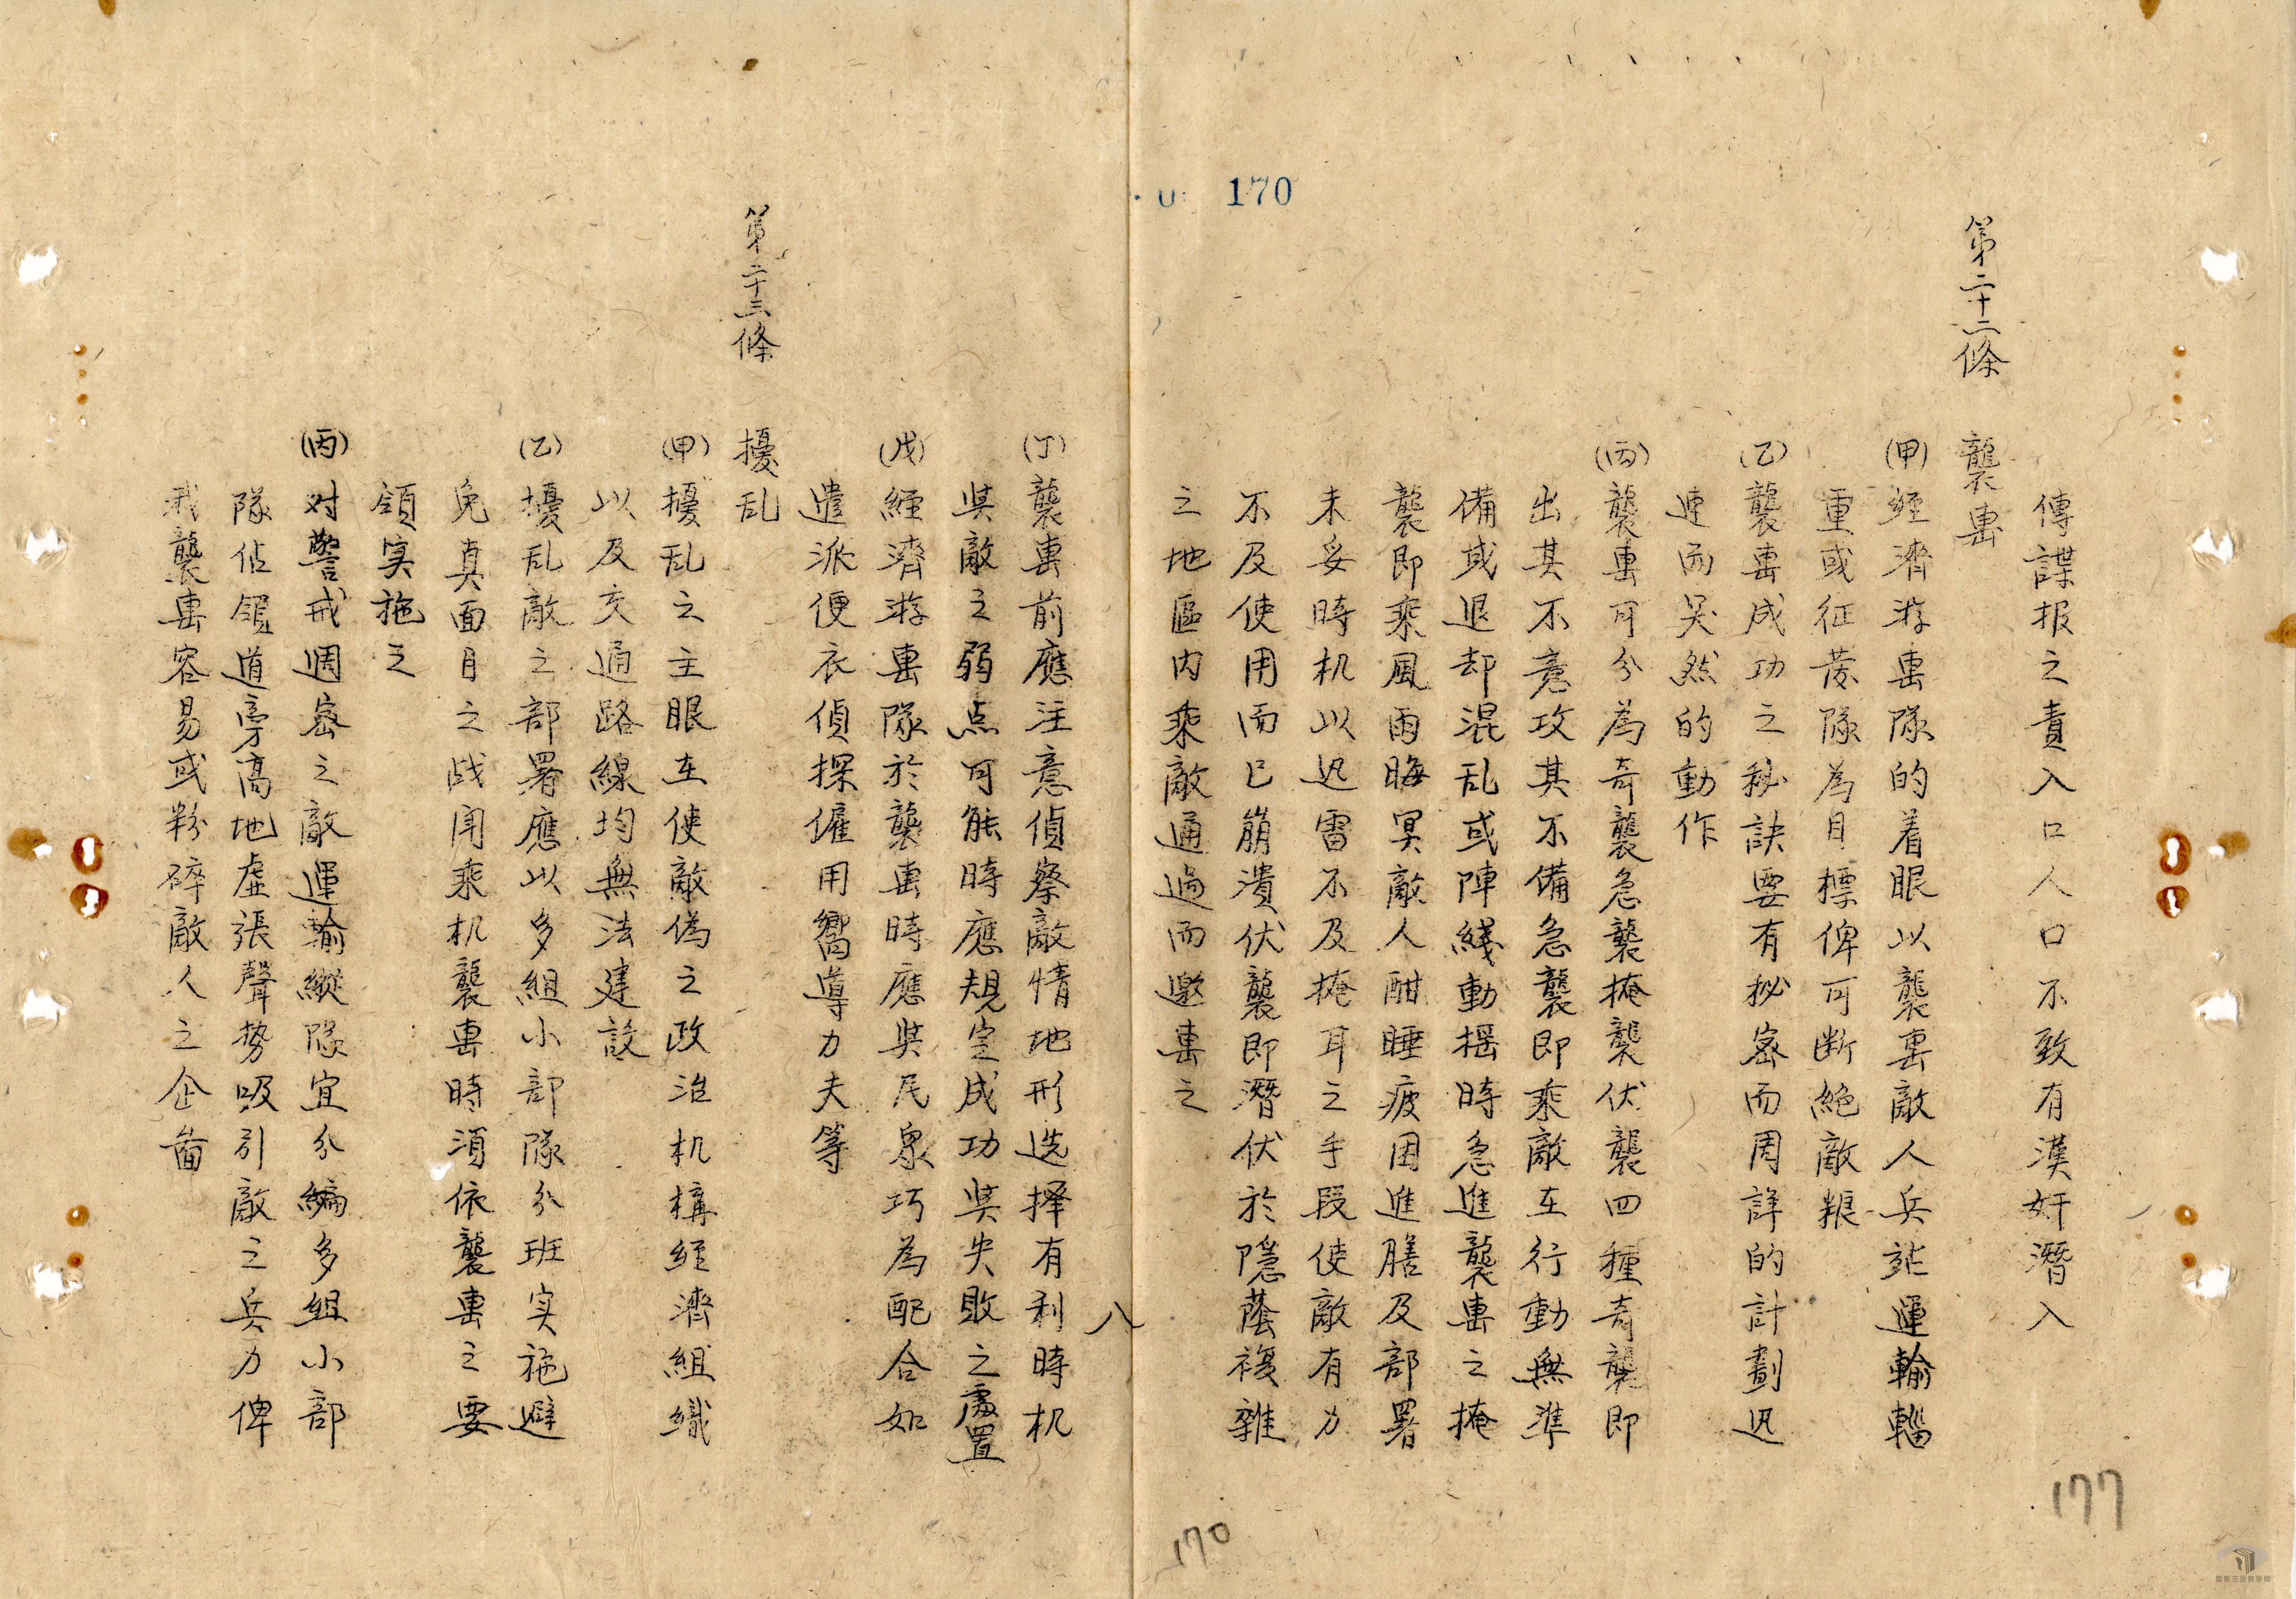 170
傳諜报之責入口人口不致有漢奸潛入
第二十二條
襲
(甲)經濟游擊隊的着眼以襲擊敵人兵站運輸輜
重或征發隊為目標俾可断絕敵粮
(乙)襲擊成功之秘訣要有秘密而周詳的計劃迅
速而突然的動作
(丙)襲擊可分為奇襲急襲掩襲伏襲四種奇襲即
出其不意攻其不備急襲即乘敵在行動無準
備或退却混乱或陣綫動摇時急進襲擊之掩
襲即乘風雨晦冥敵人酣睡疲困進膳及部署
未妥時机以迅雷不及掩耳之手段使敵有力
不及使用而已崩潰伏襲即潛伏於隱蔭複雜
之地區内乘敵通過而邀擊之
177
170
八
(丁)襲擊前應注意偵察敵情地形选择有利時机
與敵之弱点可能時應規定成功與失敗之處置
(戊)經濟游擊隊於襲擊時應與民衆巧為配合如
遣派便衣偵探僱用嚮導力夫等
第二十三條
擾乱
(甲)擾乱之主眼在使敵偽之政治机構經濟組織
以及交通路線均無法建設
(乙)擾乱敵之部署應以多組小部隊分班实施避
免真面目之战闘乘机襲擊時須依襲擊之要
領实施之
(丙)对警戒週密之敵運輸縱隊宜分編多組小部
隊佔領道旁高地虛張聲势吸引敵之兵力俾
我襲擊容易或粉碎敵人之企畨